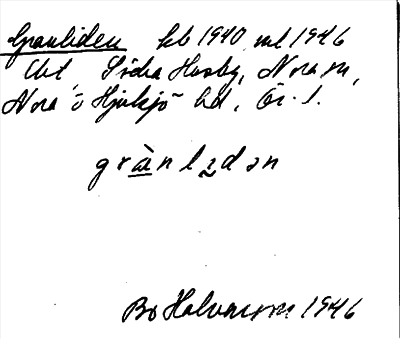 Granliden kb 1940 ml 1946
Ubt, Södra Husby, Nora sn,
Nora o Hjulsjö hd, Ör. l.
grànlədən
Bo Halvarson 1946